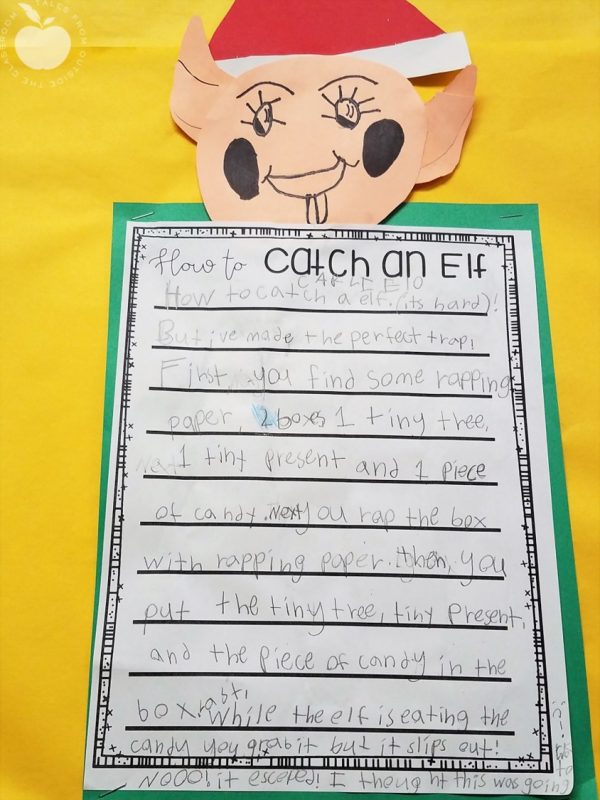 TALES FROM OUTSIDE THE CLASSROOM
How to CAtCH An Elf
How to catch a elf. (its hard)!
But ive made the perfect trap!
First, you find some rapping
paper, 2 boxes 1 tiny tree,
1 tiny present and 1 piece
of candy. Next you rap the box
with rapping paper. then, you
put the tiny tree, tiny present,
and the piece of candy in the
box. While the elf is eating the
candy you grab it but it slips out!
NOOO! it escaped! I thought this was going
to